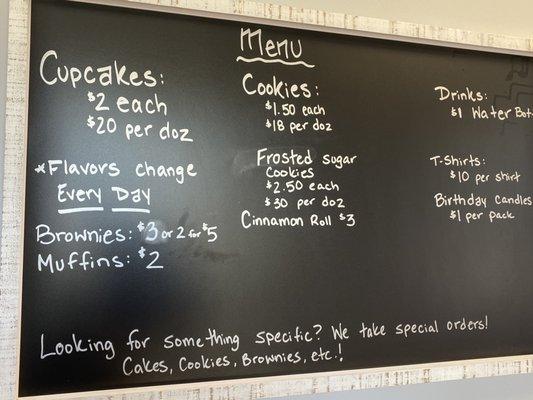 Menu
Cupcakes:
$2 each
$20 per doz
*Flavors change
Every Day
Brownies: $3 or 2 for $5
Muffins: $2
Cookies:
$1.50 each
$18 per doz
Frosted sugar
Cookies
$2.50 each
$30 per doz
Cinnamon Roll $3
Drinks:
$1 Water Bot
T-Shirts:
$10 per shirt
Birthday Candles
$1 per pack
Looking for something specific? We take special orders!
Cakes, Cookies, Brownies, etc.!